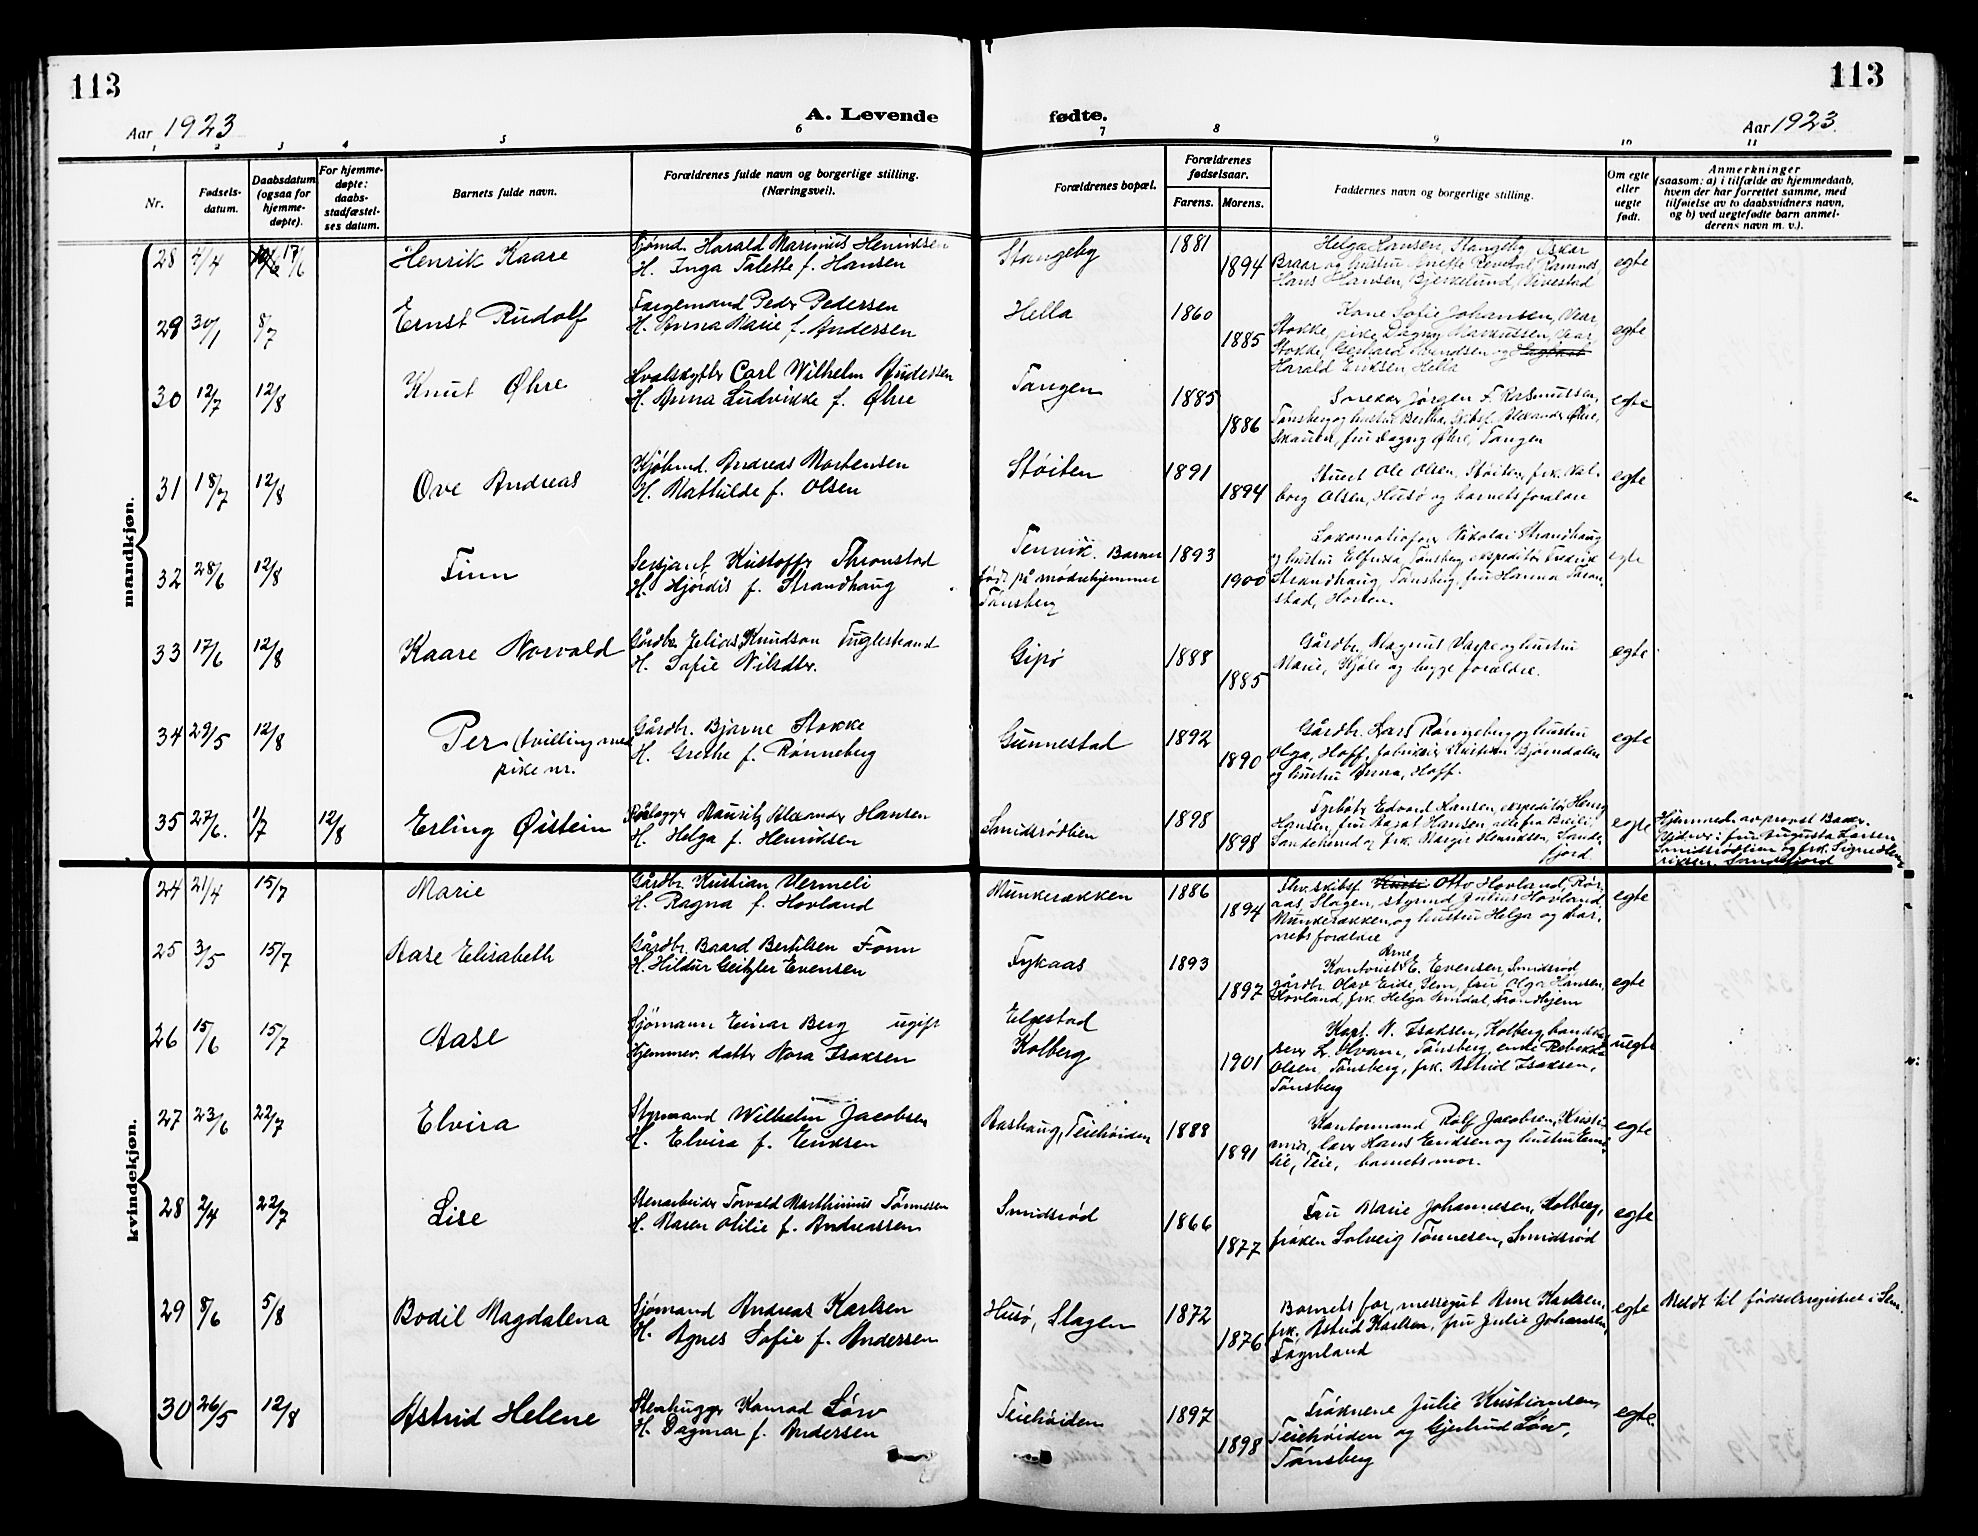 113
113
Aar 1923
A. Levende
fødte.
Aar 1923.
1 2 3 4 5 6 7 8 9 10 11
Nr.
Fødsels-
datum.
Daabsdatum
(ogsaa for
hjemme-
døpte).
For hjemme-
døpte:
daabs-
stadfæstel-
ses datum.
Barnets fulde navn.
Forældrenes fulde navn og borgerlige stilling.
(Næringsvei).
Forældrenes bopæl.
Forældrenes
fødselsaar.
Farens. Morens.
Faddernes navn og borgerlige stilling.
Om egte
eller
uegte
født.
Anmerkninger
(saasom: a) i tilfælde av hjemmedaab,
hvem der har forrettet samme, med
tilføielse av to daabsvidners navn,
og b) ved uegtefødte barn anmel-
derens navn m. v.).
mandkjøn.
28 4/4 17/6 Henrik Kaare
Sjømd. Harald Marinius Henriksen
H. Inga Talette f. Hansen
Stangeby 1881 1894
Helga Hansen, Stangeby, Oskar
Braar og hustru Anette Revetal, Ramnes,
Hans Hansen, Bjerkelund, Nivestad
egte
29 30/1 8/7 Ernst Rudolf
Fargemand Peder Pedersen
H. Anna Marie f. Andersen
Hella 1860 1885
Kone Sofie Johansen, Vear,
Stokke, pike Dagny Markussen, Vear,
Stokke, Gerhard Amundsen og
Harald Eriksen Hella
egte
30 12/7 12/8 Knut Øhre
Hvalskytter Carl Wilhelm Andersen
H. Anna Ludvikke f. Øhre
Tangen 1885 1886
Snekker Jørgen F. Rasmussen,
Tønsberg og hustru Bertha, skibsf. Alexander Øhre,
Skauen, fru Dagny Øhre, Tangen
egte
31 18/7 12/8 Ove Andreas
Kjøbmd. Andreas Mortensen
H. Mathilde f. Olsen
Støiten 1891 1894
Stuert Ole Olsen, Støiten, frk. Val-
borg Olsen, Husø og barnets foraldre
egte
32 28/6 12/8 Finn
Sersjant Kristoffer Thronstad
H. Hjørdis f. Strandhaug
Tenvik. Barnet
født på mødrehjemmet
Tønsberg
1893 1900
Lokomotivfører Nikolai Strandhaug
og hustru Elfrida, Tønsberg, ekspeditør Fredrik
Strandhaug, Tønsberg, fru Hanna Thron-
stad, Horten.
egte
33 17/6 12/8 Kaare Norvald
Gårdbr. Jelius Knudson Fuglestrand
H. Sofie Nilsdtr.
Gipø 1888 1885
Gårdbr. Magnus Varpe og hustru
Marie, Kjøle og begge foraldre.
egte
34 29/5 12/8 Per (tvilling med
pike nr.
Gårdbr. Bjarne Stokke
H. Grethe f. Rønneberg
Gunnestad 1892 1890
Gårdbr. Lars Rønneberg og hustru
Olga, Hoff, fabrikeier Kristian Bjørndalen
og hustru Anna, Hoff.
egte
35 27/6. 1/7 12/8 Erling Øistein
Rørlegger Mauritz Alexander Hansen
H. Helga f. Henriksen
Smidsrødlien 1898 1898
Fyrbøter Edvard Hansen, ekspeditør Henry
Hansen, fru Hansen
Sandeherred og frk. Margit Henriksen, Sande-
fjord.
egte
Hjemmed. av provst Baker.
Vidner: fru Augusta Larsen
Smidsrødlien og frk. Signe Hen-
riksen Sandefjord
kvindekjøn.
24 21/4 15/7 Marie
Gårdbr. Kristian Vermeli
H. Ragna f. Hovland
Munkerækken 1886 1894
Fhv. skibsf. Otto Hovland, Rør-
aas, Slagen, styrmd Julius Hovland
Munkerækken, og hustru Helga og bar-
nets foraldre
egte
25 3/5 15/7 Aase Elisabeth
Gårdbr. Baard Bertilsen Fonn
H. Hildur Geitzler Evensen
Fykaas 1893 1897
Arne
Kontorist E. Evensen, Smidsrød
gårdbr. Olav Eide, Sem, fru Olga Hansen,
Hovland, frk. Helga Amdal, Trondhjem
egte
26 15/6 15/7 Aase
Sjømann Einar Berg ugift
Hjemmev. datter Nora Isaksen
Elgestad
Kolberg
1901
Kapt. N. Isaksen, Kolberg, handels-
Tønsberg, enke Rebekka
Olsen, Tønsberg, frk. Astrid Isaksen,
Tønsberg
uegte
27 23/6 22/7 Elvira
Styrmand Wilhelm Jacobsen
H. Elvira f. Eriksen
Bashaug, Teiehøiden 1888 1891
Kontormand Rolf Jacobsen, Kristi-
ania, lærer Hans Eriksen og hustru Emi-
lie, Teie, barnets mor.
egte
28 2/4 22/7 Lise
Stenarbeider Torvald Marthinius Tønnesen
H. Maren Otilie f. Andreassen
Smidsrød 1866 1877
Fru Marie Johannesen, Kolberg,
frøken Solveig Tønnesen, Smidsrød
egte
29 8/6 5/8 Bodil Magdalena
Sjømand Andreas Karlsen
H. Agnes Sofie f. Andersen
Husø, Slagen 1872 1876
Barnets far, messegut Arne Karlsen,
frk. Astrid Karlsen, fru Julie Johansen,
Føynland
egte
Meldt til fødselsregistret i Sem.
30 26/5 12/8 Astrid Helene
Stenhugger Konrad Løw
H. Dagmar f. Andersen
Teiehøiden 1897 1898
Frøknene Julie Kristiansen,
Teiehøiden og Gjertrud Løw,
Tønsberg
egte.